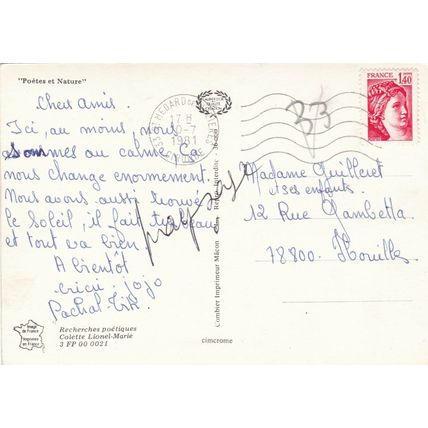 "Poètes et Nature"
Chers Amis.
Ici, au moins, nous
sommes au calme. Ça
nous change enormement.
Nous avons aussi trouvé
le soleil, il fait très beau
et tout va bien.
A bientôt
cricri, jojo
Image
de France
Imprimée
en France
Recherches poétiques
Colette Lionel-Marie
3 FP 00 0021
17 H
10-7
1981
GIRONDE
Combier Imprimeur Mâcon
Repr. Interdite
cimcrome
FRANCE
1,40
33
Madame Guilleret
et ses enfants.
12 Rue Gambetta
78800. Houilles